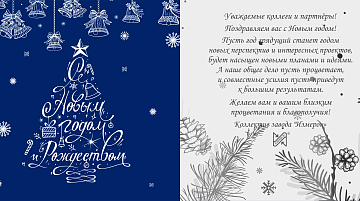 С
Новым
годом
и Рождеством
Уважаемые коллеги и партнёры!
Поздравляем вас с Новым годом!
Пусть год грядущий станет годом
новых перспектив и интересных проектов,
будет насыщен новыми планами и идеями.
А наше общее дело пусть процветает,
и совместные усилия пусть приведут
к большим результатам.
Желаем вам и вашим близким
процветания и благополучия!
Коллектив завода